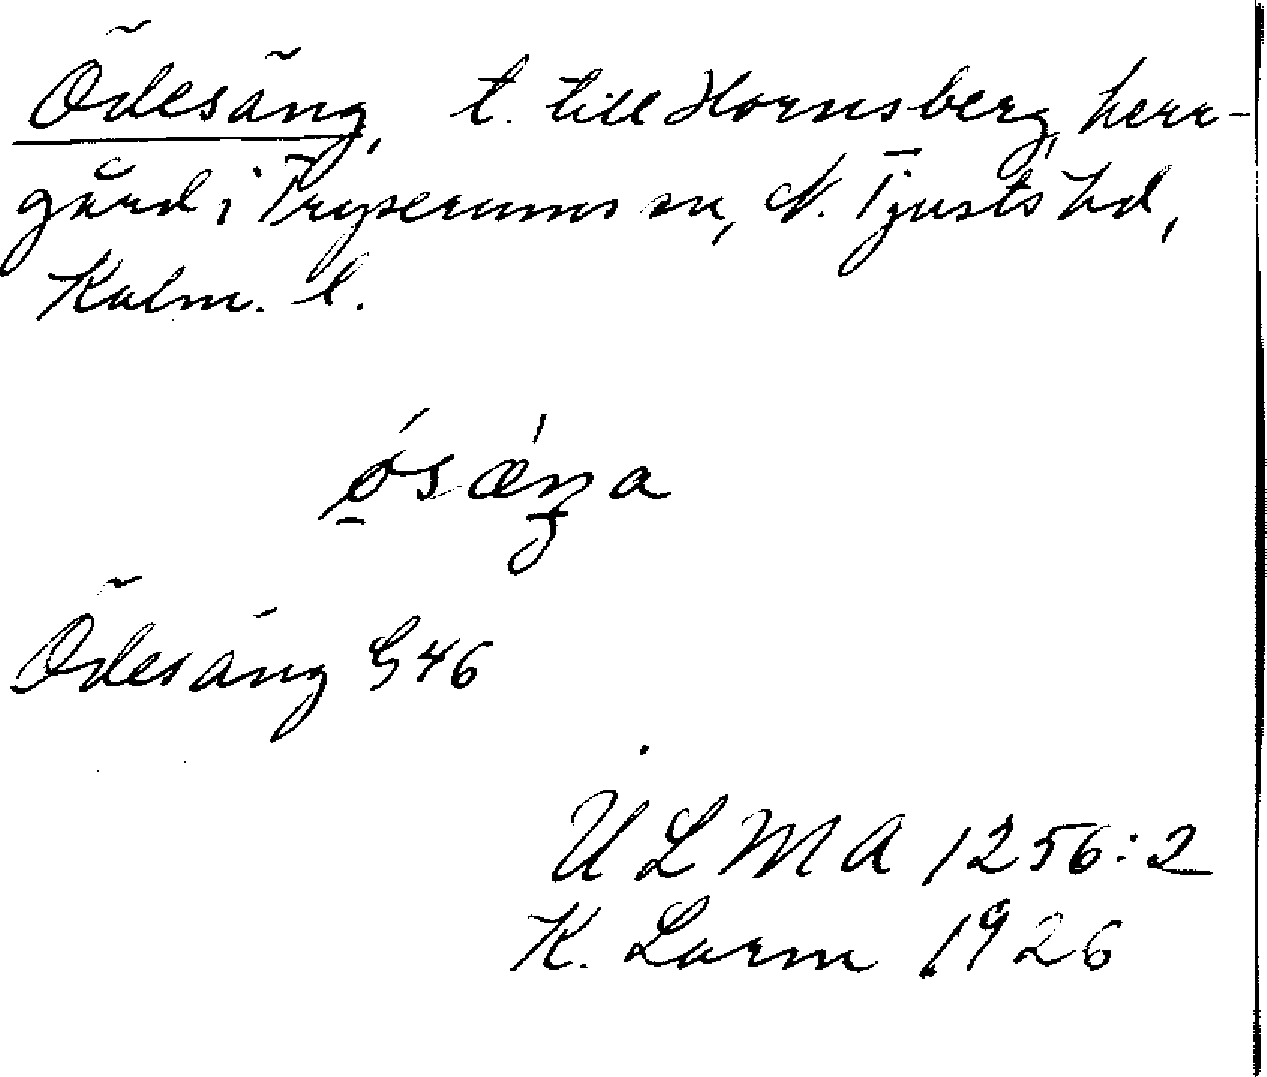 Ödesäng, t. till Hornsberg, herr-
gård i Tryserums sn, N. Tjusts hd,
Kalm. l.
ǿsæ̀ŋa
Ödesäng G46
ULMA 1256:2
K. Larm 1926